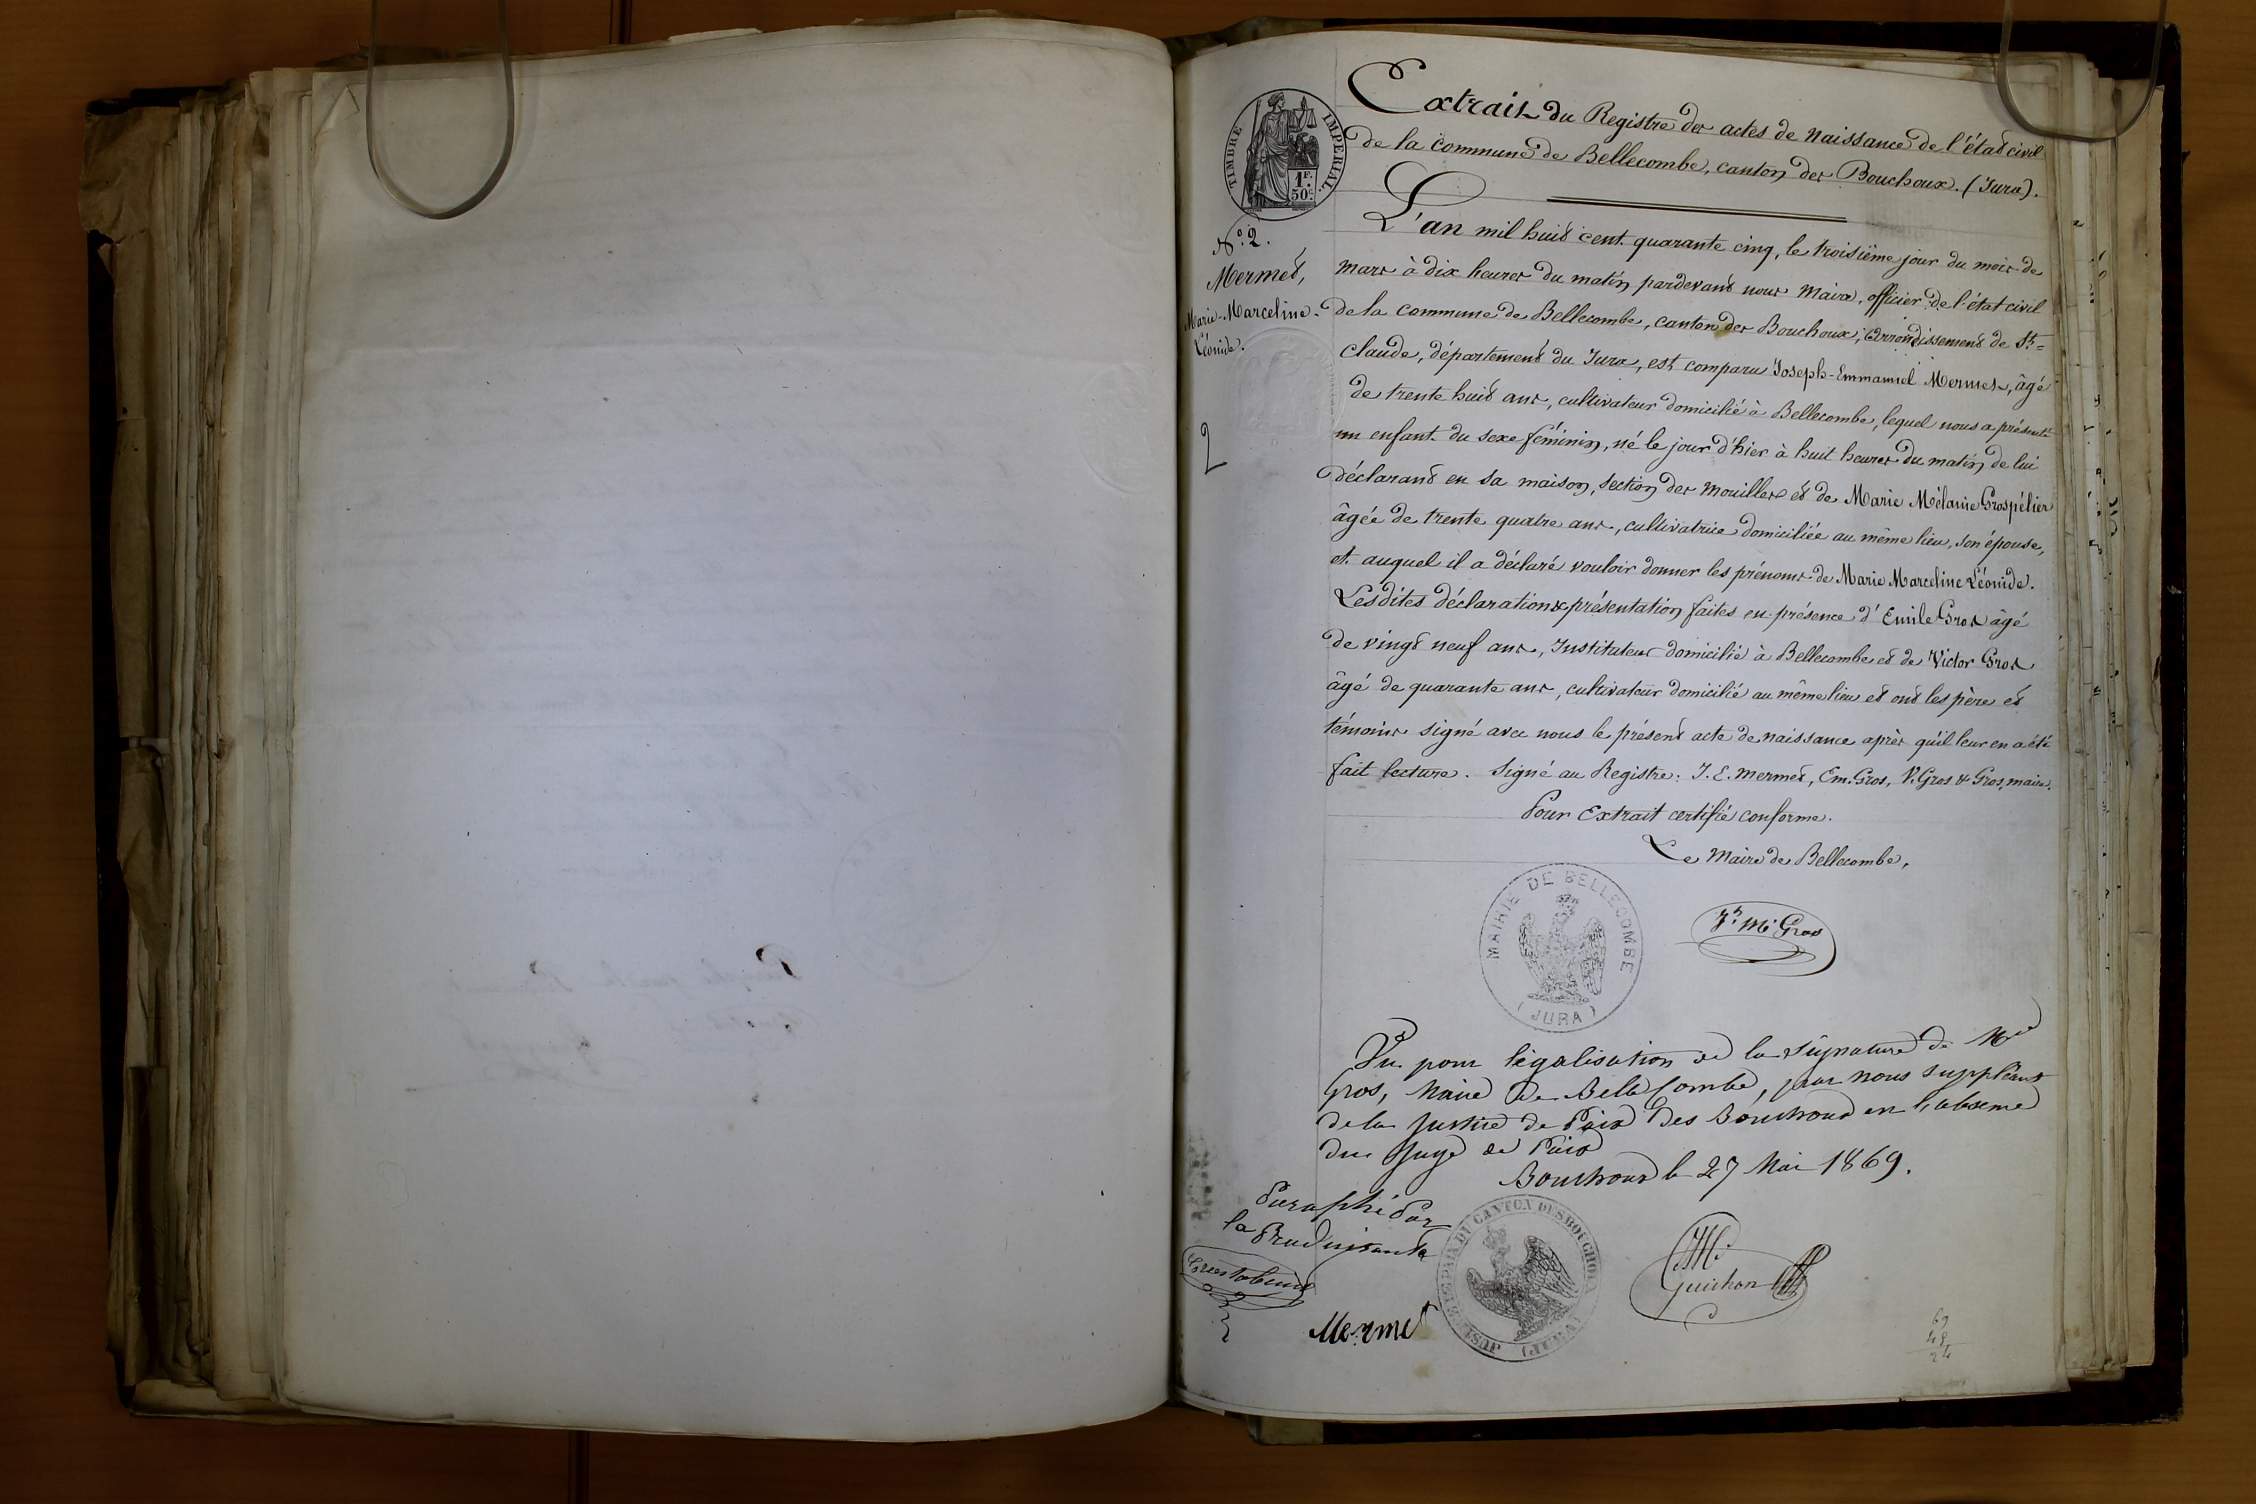 TIMBRE IMPERIAL.
1F.
50c.
Extrait du Registre des actes de naissance de l'état civil
de la commune de Bellecombe, canton des Bouchoux. (Jura).
N.º 2.
Mermet,
Marie-Marceline-
Léonide.
2
L'an mil huit cent quarante cinq, le troisième jour du mois de
mars à dix heures du matin pardevant nous Maire, officier de l'état civil
de la commune de Bellecombe, canton des Bouchoux, arrondissement de St=
claude, département du Jura, est comparu Joseph-Emmanuel Mermet, âgé
de trente huit ans, cultivateur domicilié à Bellecombe, lequel nous a présenté
un enfant du sexe féminin, né le jour d'hier à huit heures du matin de lui
déclarant en sa maison, section des mouilles et de Marie Mélanie Grospélier
âgée de trente quatre ans, cultivatrice domiciliée au même lieu, son épouse,
et auquel il a déclaré vouloir donner les prénoms de Marie Marceline Léonide.
Lesdites déclaration & présentation faites en présence d'Emile Gros âgé
de vingt neuf ans, Instituteur domicilié à Bellecombe et de Victor Gros
âgé de quarante ans, cultivateur domicilié au même lieu et ont les père et
témoins signé avec nous le présent acte de naissance après qu'il leur en a été
fait lecture. Signé au Registre: J. E. Mermet, Em. Gros, V. Gros & Gros, maire.
Pour Extrait certifié conforme.
Le Maire de Bellecombe,
MAIRIE DE BELLECOMBE
(JURA)
Jh. Mi Gros
Vu pour légalisation de la signature de Mr
Gros, Maire de BelleCombe, par nous suppléant
de la Justice de Paix des Bouchoux en l'absence
du Juge de Paix
Bouchoux le 27 Mai 1869.
Paraphé Par
la Produisante
Mermet
JUSTICE DE PAIX DU CANTON DES BOUCHOUX
(JURA)
Mi
Guichon
69
48
24